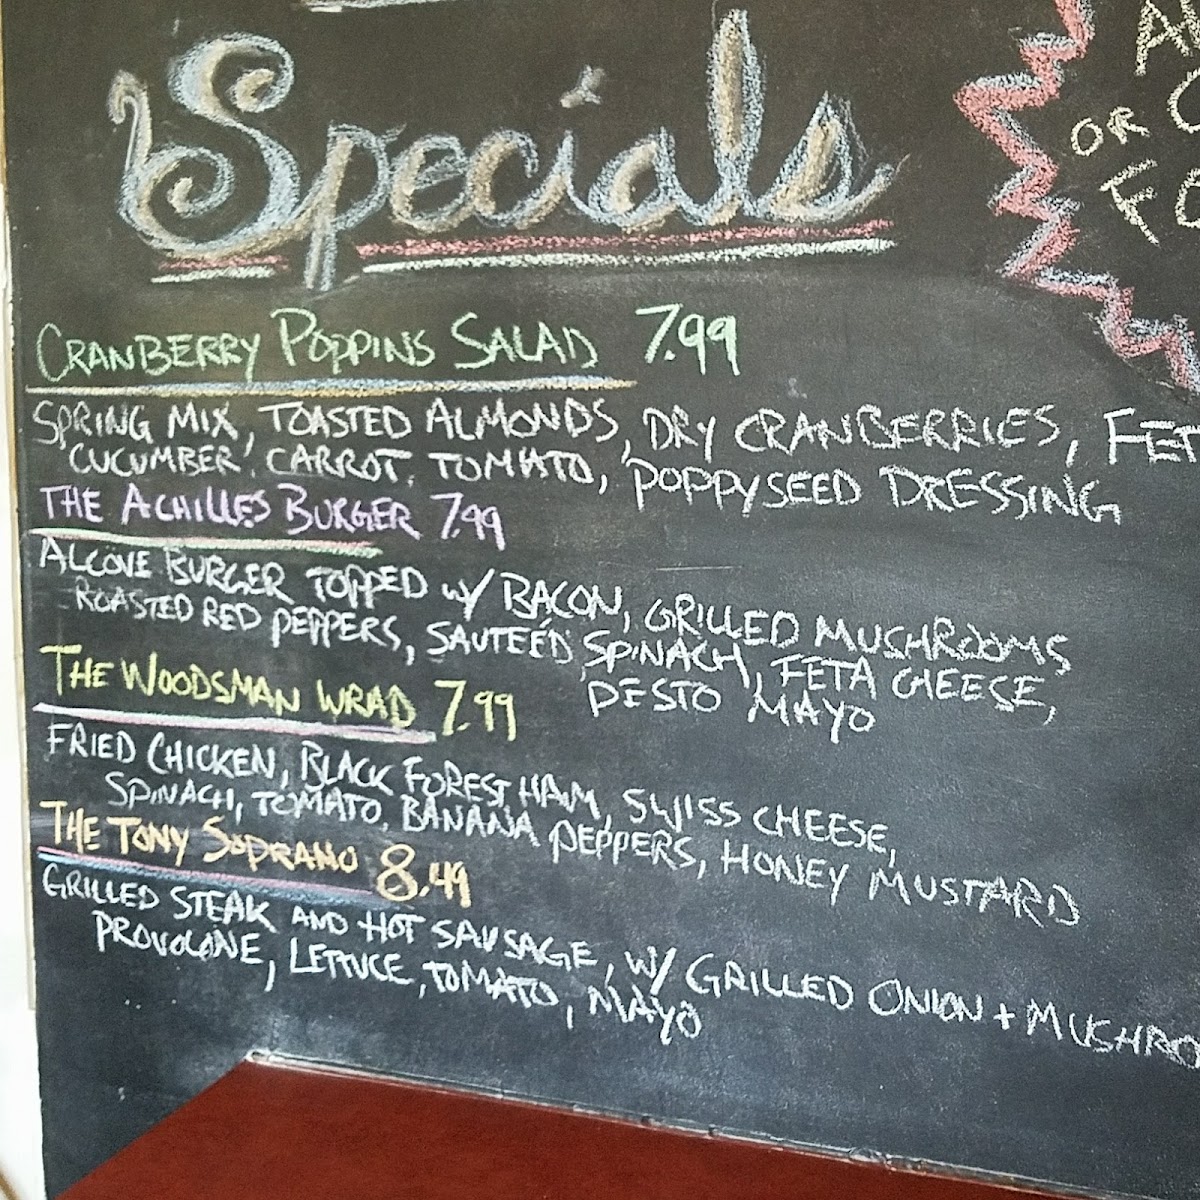 Specials
A
OR C
FO
CRANBERRY POPPINS SALAD 7.99
SPRING MIX, TOASTED ALMONDS, DRY CRANBERRIES, FET
CUCUMBER, CARROT, TOMATO, POPPYSEED DRESSING
THE ACHILLES BURGER 7.99
ALCOVE BURGER TOPPED W/ BACON, GRILLED MUSHROOMS
ROASTED RED PEPPERS, SAUTEÉD SPINACH, FETA CHEESE,
PESTO MAYO
THE WOODSMAN WRAP 7.99
FRIED CHICKEN, BLACK FOREST HAM, SWISS CHEESE,
SPINACH, TOMATO, BANANA PEPPERS, HONEY MUSTARD
THE TONY SOPRANO 8.49
GRILLED STEAK AND HOT SAUSAGE, W/ GRILLED ONION + MUSHRO
PROVOLONE, LETTUCE, TOMATO, MAYO